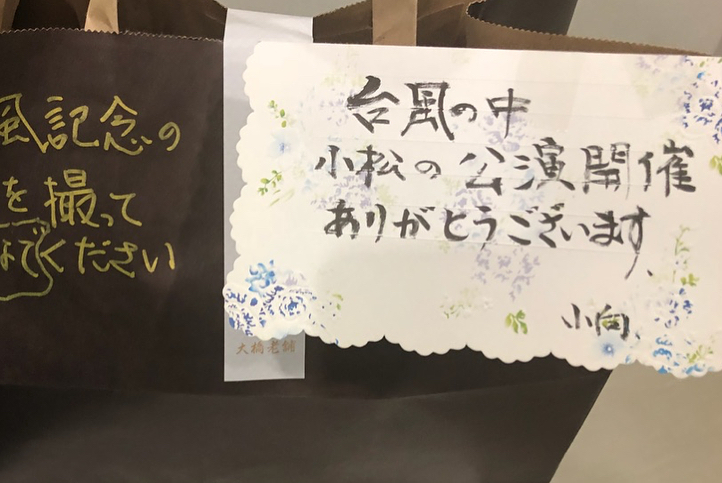 風記念の
を撮って
でください
台風の中
小松の公演開催
ありがとうございます、
小向